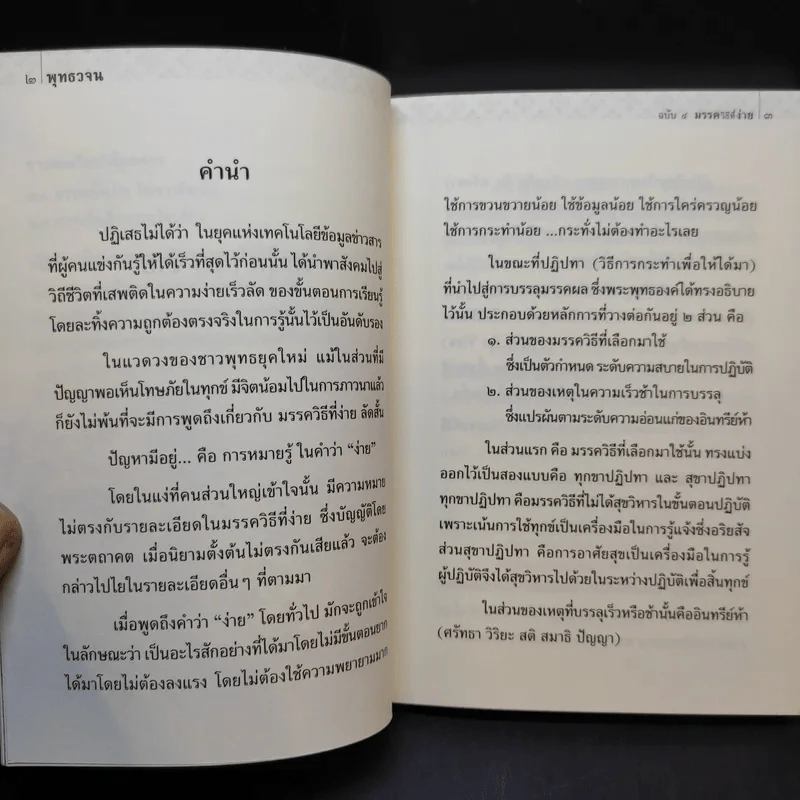 ๒ พุทธวจน
คำนำ
ปฏิเสธไม่ได้ว่า ในยุคแห่งเทคโนโลยีข้อมูลข่าวสาร
ที่ผู้คนแข่งกันรู้ให้ได้เร็วที่สุดไว้ก่อนนั้น ได้นำพาสังคมไปสู่
วิถีชีวิตที่เสพติดในความง่ายเร็วลัด ของขั้นตอนการเรียนรู้
โดยละทิ้งความถูกต้องตรงจริงในการรู้นั้นไว้เป็นอันดับรอง
ในแวดวงของชาวพุทธยุคใหม่ แม้ในส่วนที่มี
ปัญญาพอเห็นโทษภัยในทุกข์ มีจิตน้อมไปในการภาวนาแล้ว
ก็ยังไม่พ้นที่จะมีการพูดถึงเกี่ยวกับ มรรควิธีที่ง่าย ลัดสั้น
ปัญหามีอยู่... คือ การหมายรู้ ในคำว่า “ง่าย”
โดยในแง่ที่คนส่วนใหญ่เข้าใจนั้น มีความหมาย
ไม่ตรงกับรายละเอียดในมรรควิธีที่ง่าย ซึ่งบัญญัติโดย
พระตถาคต เมื่อนิยามตั้งต้นไม่ตรงกันเสียแล้ว จะต้อง
กล่าวไปไยในรายละเอียดอื่นๆ ที่ตามมา
เมื่อพูดถึงคำว่า “ง่าย” โดยทั่วไป มักจะถูกเข้าใจ
ในลักษณะว่า เป็นอะไรสักอย่างที่ได้มาโดยไม่มีขั้นตอนยาก
ได้มาโดยไม่ต้องลงแรง โดยไม่ต้องใช้ความพยายามมาก
ฉบับ ๔ มรรควิธีที่ง่าย ๓
ใช้การขวนขวายน้อย ใช้ข้อมูลน้อย ใช้การใคร่ครวญน้อย
ใช้การกระทำน้อย ...กระทั่งไม่ต้องทำอะไรเลย
ในขณะที่ปฏิปทา (วิธีการกระทำเพื่อให้ได้มา)
ที่นำไปสู่การบรรลุมรรคผล ซึ่งพระพุทธองค์ได้ทรงอธิบาย
ไว้นั้น ประกอบด้วยหลักการที่วางต่อกันอยู่ ๒ ส่วน คือ
๑. ส่วนของมรรควิธีที่เลือกมาใช้
ซึ่งเป็นตัวกำหนด ระดับความสบายในการปฏิบัติ
๒. ส่วนของเหตุในความเร็วช้าในการบรรลุ
ซึ่งแปรผันตามระดับความอ่อนแก่ของอินทรีย์ห้า
ในส่วนแรก คือ มรรควิธีที่เลือกมาใช้นั้น ทรงแบ่ง
ออกไว้เป็นสองแบบคือ ทุกขาปฏิปทา และ สุขาปฏิปทา
ทุกขาปฏิปทา คือมรรควิธีที่ไม่ได้สุขวิหารในขั้นตอนปฏิบัติ
เพราะเน้นการใช้ทุกข์เป็นเครื่องมือในการรู้แจ้งซึ่งอริยสัจ
ส่วนสุขาปฏิปทา คือการอาศัยสุขเป็นเครื่องมือในการรู้
ผู้ปฏิบัติจึงได้สุขวิหารไปด้วยในระหว่างปฏิบัติเพื่อสิ้นทุกข์
ในส่วนของเหตุที่บรรลุเร็วหรือช้านั้นคืออินทรีย์ห้า
(ศรัทธา วิริยะ สติ สมาธิ ปัญญา)